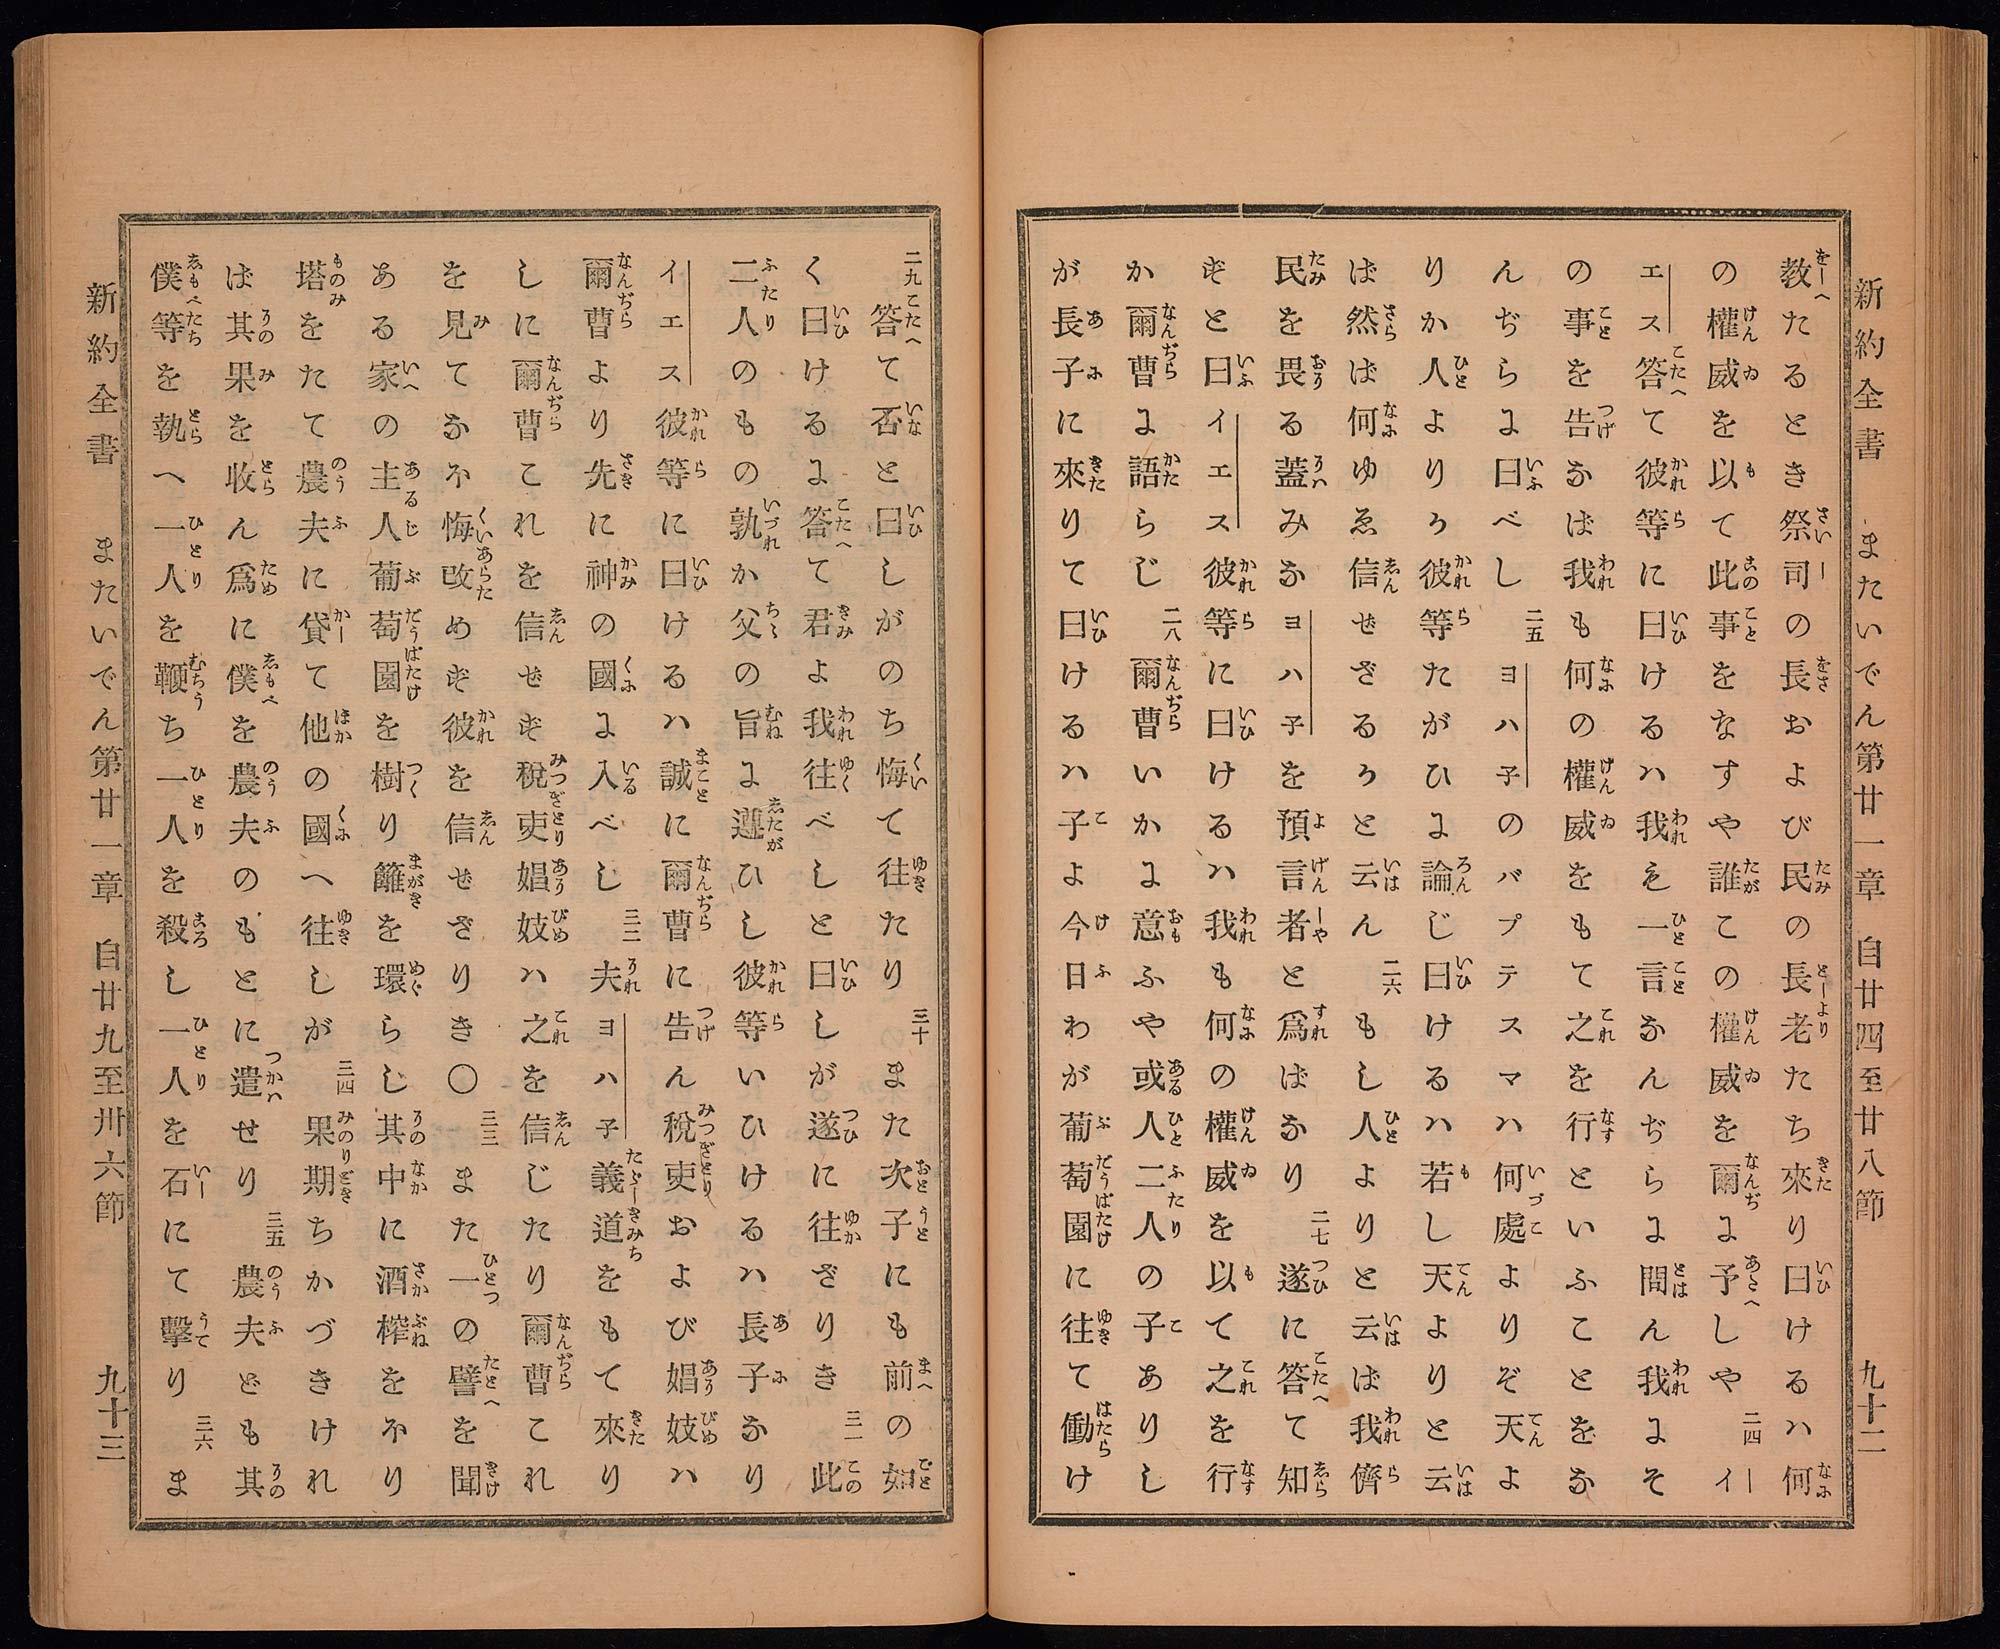 新約全書　またいでん第廿一章　自廿四至廿八節　九十二
教たるとき祭司の長および民の長老たち來り曰けるハ何
の權威を以て此事をなすや誰この權威を爾に予しや二四イ
エス答て彼等に曰けるハ我も一言なんぢらに問ん我にそ
の事を告なば我も何の權威をもて之を行といふことをな
んぢらに曰べし二五ヨハ子のバプテスマハ何處よりぞ天よ
りか人よりか彼等たがひに論じ曰けるハ若し天よりと云
ば然ば何ゆゑ信ぜざるかと云ん二六もし人よりと云ば我儕
民を畏る蓋みなヨハ子を預言者と爲ばなり二七遂に答て知
ずと曰イエス彼等に曰けるハ我も何の權威を以て之を行
か爾曹に語らじ二八爾曹いかに意ふや或人二人の子ありし
が長子に來りて曰けるハ子よ今日わが葡萄園に往て働け
二九答て否と曰しがのち悔て往たり三十また次子にも前の如
く曰けるに答て君よ我往べしと曰しが遂に往ざりき三一此
二人のもの孰か父の旨に遵ひし彼等いひけるハ長子なり
イエス彼等に曰けるハ誠に爾曹に告ん稅吏および娼妓ハ
爾曹より先に神の國に入べし三二夫ヨハ子義道をもて來り
しに爾曹これを信ぜず稅吏娼妓ハ之を信じたり爾曹これ
を見てなほ悔改めず彼を信せざりき〇三三また一の譬を聞
ある家の主人葡萄園を樹り籬を環らし其中に酒榨をほり
塔をたて農夫に貸て他の國へ往しが三四果期ちかづきけれ
ば其果を收ん爲に僕を農夫のもとに遣せり三五農夫ども其
僕等を執へ一人を鞭ち一人を殺し一人を石にて擊り三六ま
新約全書　またいでん第廿一章　自廿九至卅六節　九十三